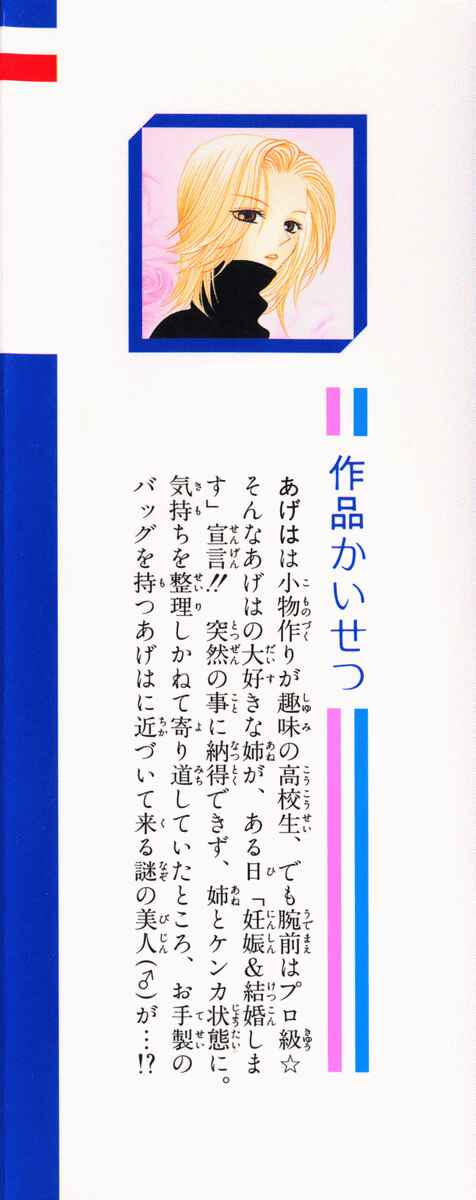 作品かいせつ
あげはは小物作りが趣味の高校生、でも腕前はプロ級☆
そんなあげはの大好きな姉が、ある日「妊娠&結婚しま
す」宣言!! 突然の事に納得できず、姉とケンカ状態に。
気持ちを整理しかねて寄り道していたところ、お手製の
バッグを持つあげはに近づいて来る謎の美人(♂)が…!?